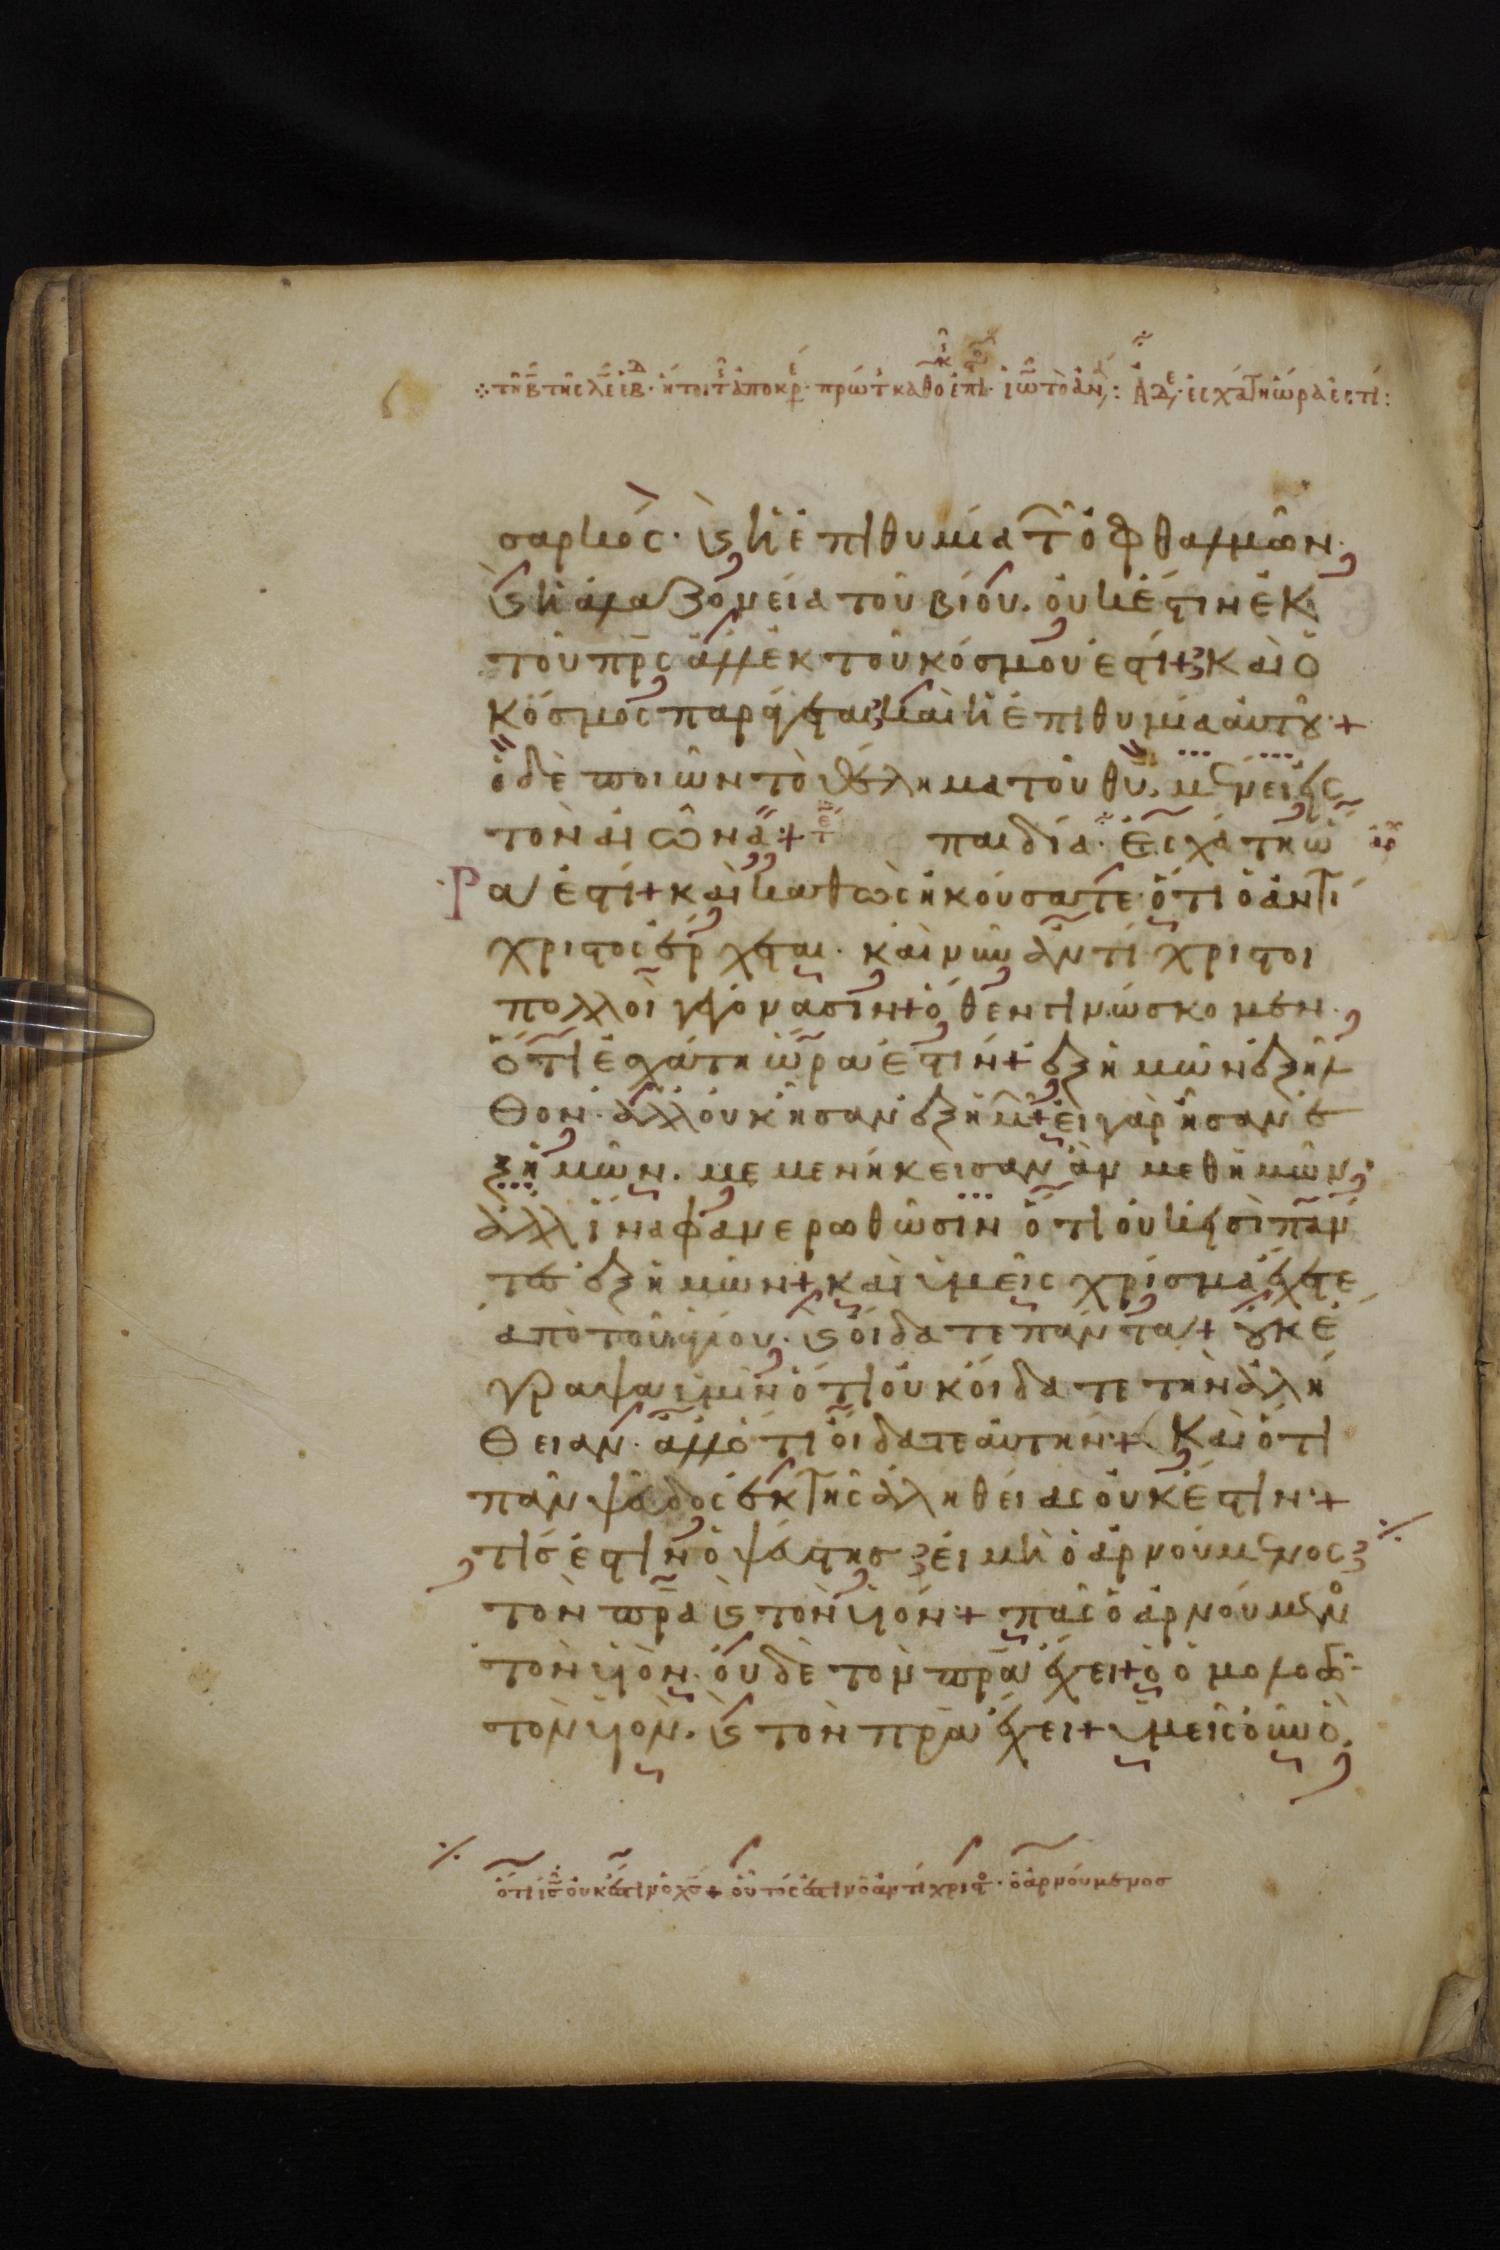 σαρκός· καὶ ἡ ἐπιθυμία τ̂ ὀφθαλμῶν·
καὶ ἡ ἀλαζονεία τοῦ βίου. οὐκ ἔστιν ἐκ
τοῦ πρ̅ς ἀλλ ἐκ τοῦ κόσμου ἐστί + καὶ ὁ
κόσμος παράγεται καὶ ἡ ἐπιθυμία αὐτοῦ· +
ὁ δὲ ποιῶν τὸ θέλημα τοῦ θυ̅. μένει εἰς
τὸν αἰῶνα: + παιδία· ἐσχάτη ὥ
ρα ἐστί + καὶ καθὼς ἠκούσατε ὅτι ὁ ἀντί
χριστος ἔρχεται· καὶ νῦν ἀντίχριστοι
πολλοὶ γεγόνασιν + ὅθεν γινώσκομεν·
ὅτι ἐσχάτη ὥρα ἐστίν + ἐξ ἡμῶν ἐξῆλ
θον· ἀλλ οὐκ ἦσαν ἐξ ἡμ̂ + εἰ γὰρ ἦσαν ἐ
ξ ἡμῶν. μεμενήκεισαν ἂν μεθ ἡμῶν·
ἀλλ ἵνα φανερωθῶσιν ὅτι οὐκ εἰσὶ πάν
τες ἐξ ἡμῶν + καὶ ὑμεῖς χρίσμα ἔχετε
ἀπὸ τοῦ ἁγίου· καὶ οἴδατε πάντα + οὐκ ἔ
γραψα ὑμῖν ὅτι οὐκ οἴδατε τὴν ἀλή
θειαν· ἀλλ ὅτι οἴδατε αὐτήν· + καὶ ὅτι
πᾶν ψεῦδος ἐκ τῆς ἀληθείας οὐκ ἔστιν· +
τίς ἐστιν ὁ ψεύστης εἰ μὴ ὁ ἀρνούμενος
τὸν πρ̅α καὶ τὸν υἱόν· + πᾶς ὁ ἀρνούμεν
τὸν υἱὸν· οὐδὲ τὸν πρ̅α ἔχει + ὁ ὁμολογῶ
τὸν υἱὸν. καὶ τὸν πρ̅α ἔχει + ὑμεῖς οὖν ὃ
ὅτι ις̅ οὐκ ἔστιν ὁ χς̅ + οὗτός ἐστιν ὁ ἀντίχριστ· ὁ ἀρνούμενος